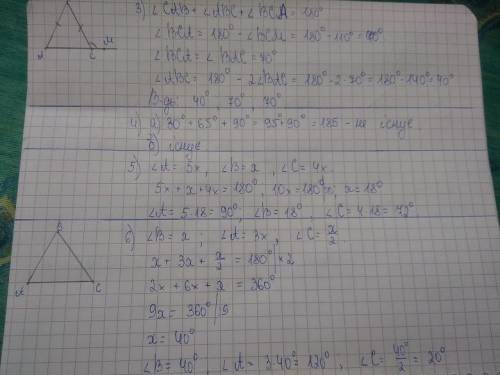 3) ∠CAB + ∠ABC + ∠BCA = 180°
∠BCA = 180° - ∠BCM = 180° - 110° = 70°
∠BCA = ∠BAC = 70°
∠ABC = 180° - 2∠BAC = 180° - 2·70° = 180° - 140° = 40°
В-дь: 40°, 70°, 70°
A C M
4) а) 30° + 65° + 90° = 95° + 90° = 185 - не існує
б) існує
5) ∠A = 5x, ∠B = x, ∠C = 4x
5x + x + 4x = 180°, 10x = 180°, x = 18°
∠A = 5·18 = 90°, ∠B = 18°, ∠C = 4·18 = 72°
6) ∠B = x, ∠A = 3x, ∠C = x/2
x + 3x + x/2 = 180° | ×2
2x + 6x + x = 360°
9x = 360° | 9
x = 40°
∠B = 40°, ∠A = 3·40 = 120°, ∠C = 40°/2 = 20°
B
A C